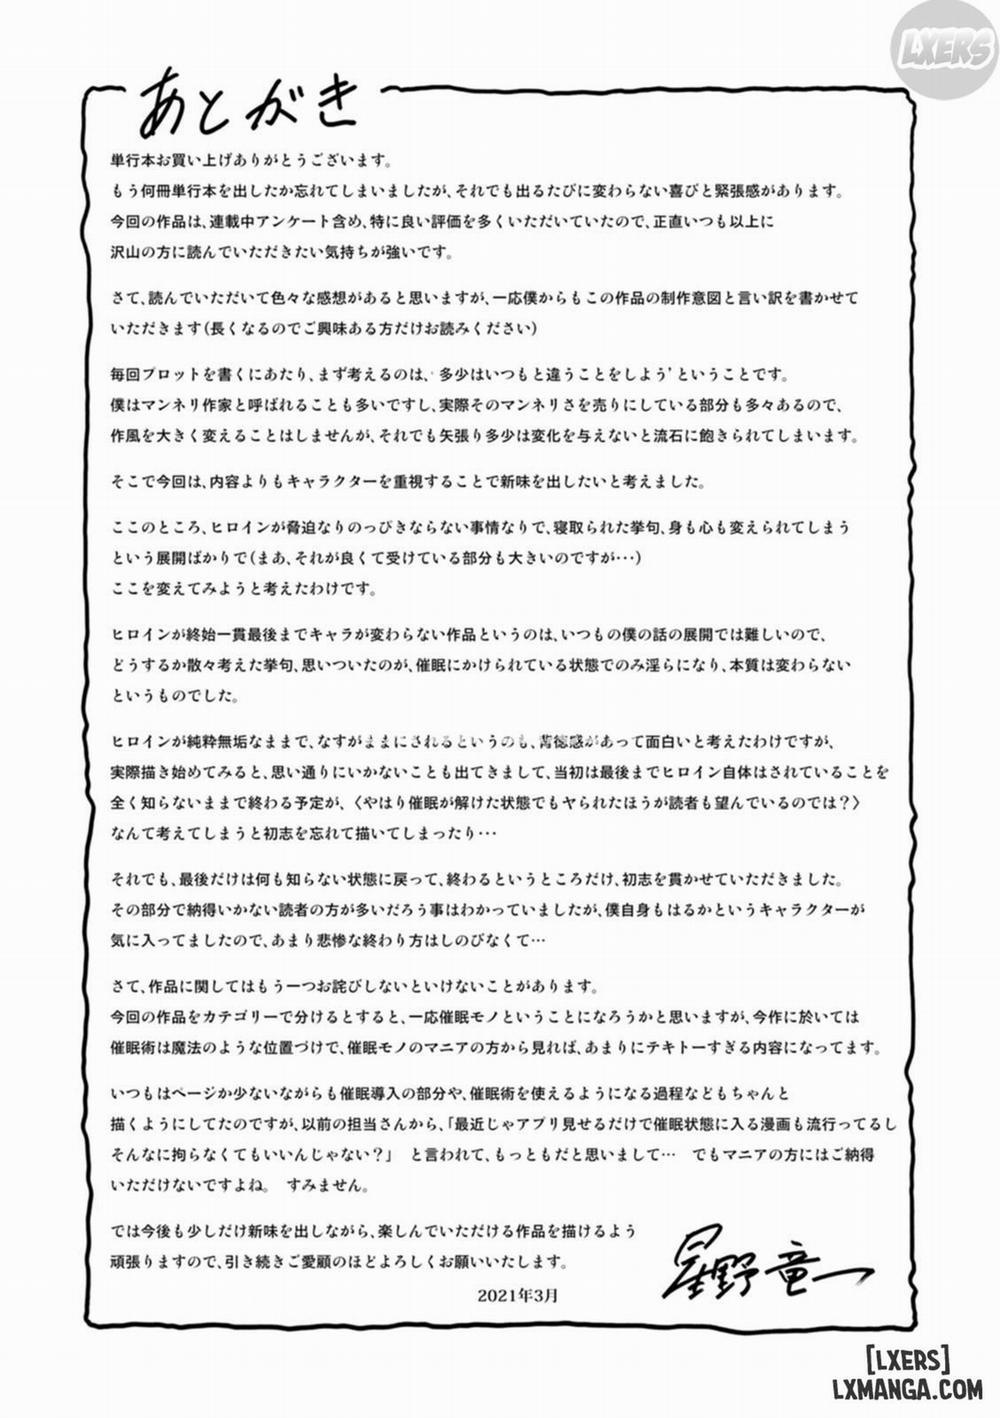 LXERS
あとがき
単行本お買い上げありがとうございます。
もう何冊単行本を出したか忘れてしまいましたが、それでも出るたびに変わらない喜びと緊張感があります。
今回の作品は、連載中アンケート含め、特に良い評価を多くいただいていたので、正直いつも以上に
沢山の方に読んでいただきたい気持ちが強いです。
さて、読んでいただいて色々な感想があると思いますが、一応僕からもこの作品の制作意図と言い訳を書かせて
いただきます(長くなるのでご興味ある方だけお読みください)
毎回プロットを書くにあたり、まず考えるのは、'多少はいつもと違うことをしよう'ということです。
僕はマンネリ作家と呼ばれることも多いですし、実際そのマンネリさを売りにしている部分も多々あるので、
作風を大きく変えることはしませんが、それでも矢張り多少は変化を与えないと流石に飽きられてしまいます。
そこで今回は、内容よりもキャラクターを重視することで新味を出したいと考えました。
ここのところ、ヒロインが脅迫なりのっぴきならない事情なりで、寝取られた挙句、身も心も変えられてしまう
という展開ばかりで(まあ、それが良くて受けている部分も大きいのですが･･･)
ここを変えてみようと考えたわけです。
ヒロインが終始一貫最後までキャラが変わらない作品というのは、いつもの僕の話の展開では難しいので、
どうするか散々考えた挙句、思いついたのが、催眠にかけられている状態でのみ淫らになり、本質は変わらない
というものでした。
ヒロインが純粋無垢なままで、なすがままにされるというのも、背徳感があって面白いと考えたわけですが、
実際描き始めてみると、思い通りにいかないことも出てきまして、当初は最後までヒロイン自体はされていることを
全く知らないままで終わる予定が、〈やはり催眠が解けた状態でもヤられたほうが読者も望んでいるのでは?〉
なんて考えてしまうと初志を忘れて描いてしまったり･･･
それでも、最後だけは何も知らない状態に戻って、終わるというところだけ、初志を貫かせていただきました。
その部分で納得いかない読者の方が多いだろう事はわかっていましたが、僕自身もはるかというキャラクターが
気に入ってましたので、あまり悲惨な終わり方はしのびなくて…
さて、作品に関してはもう一つお詫びしないといけないことがあります。
今回の作品をカテゴリーで分けるとすると、一応催眠モノということになろうかと思いますが、今作に於いては
催眠術は魔法のような位置づけで、催眠モノのマニアの方から見れば、あまりにテキトーすぎる内容になってます。
いつもはページか少ないながらも催眠導入の部分や、催眠術を使えるようになる過程などもちゃんと
描くようにしてたのですが、以前の担当さんから、「最近じゃアプリ見せるだけで催眠状態に入る漫画も流行ってるし
そんなに拘らなくてもいいんじゃない?」 と言われて、もっともだと思いまして… でもマニアの方にはご納得
いただけないですよね。 すみません。
では今後も少しだけ新味を出しながら、楽しんでいただける作品を描けるよう
頑張りますので、引き続きご愛顧のほどよろしくお願いいたします。
星野竜一
2021年3月
[LXERS]
LXMANGA.COM